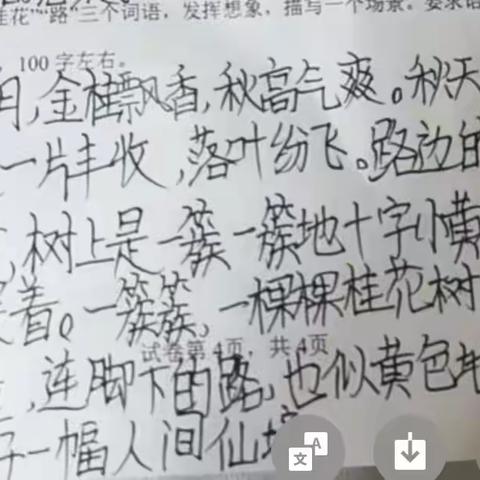 桂花”“路”三个词语，发挥想象，描写一个场景。要求语
100字左右。
月，金桂飘香，秋高气爽。秋天
一片丰收，落叶纷飞。路边的
，树上是一簇一簇地十字小黄
着。一簇簇，一棵棵桂花树
试卷第4页，共4页
，连脚下的路，也似黄色
一幅人间仙境